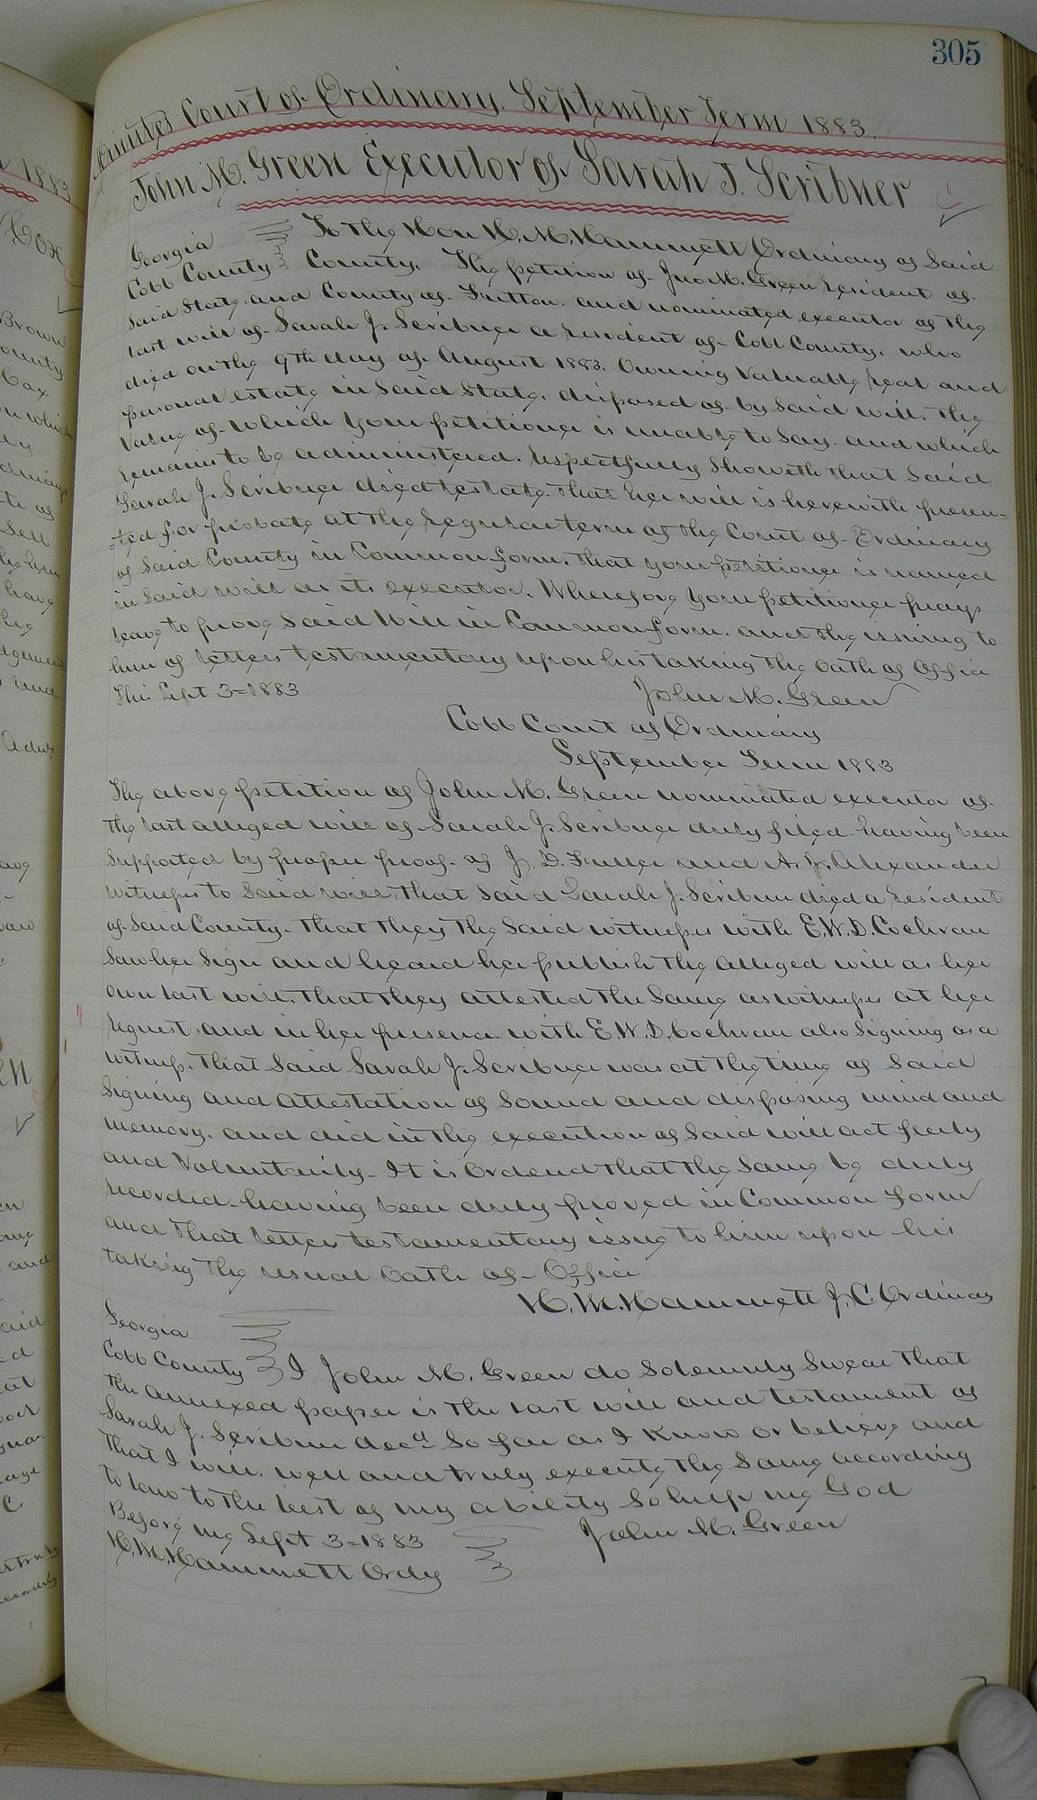 305
Minutes Court of Ordinary September Term 1883.
John M. Green Executor of Sarah J. Scribner
Georgia
Cobb County
To the Hon H. M. Hammett Ordinary of Said
County. The petition of Jno M. Green resident of
Said State and County of Fulton. and nominated executor of the
last will of Sarah J. Scribner a resident of Cobb County. who
died on the 9th day of August 1883. Owning Valuable real and
personal estate in Said State. disposed of by Said will. the
Value of which your petitioner is unable to Say. and which
remains to be administered. respectfully Showeth that Said
Sarah J. Scribner died testate. that her will is herewith presen-
-ted for probate at the regular term of the Court of Ordinary
of Said County in Common form. that your petitioner is named
in Said will as its executor. Wherefore your petitioner prays
leave to prove Said Will in Common form. and the issuing to
him of letters testamentary upon his taking the Oath of Office
This Sept 3=1883
John M. Green
Cobb Court of Ordinary
September Term 1883
The above petition of John M. Green nominated executor of
the last alleged will of Sarah J. Scribner duly filed. having been
Supported by proper proof. of J. D. Fuller and A. J. Alexander
witnesses to Said will. that Said Sarah J. Scribner died a resident
of Said County. that they the Said witnesses with E. W. D. Cochran
Saw her Sign and heard her publish the alleged will as her
Own last will. that they attested the Same as witnesses at her
request. and in her presence. with E. W. D. Cochran also Signing as a
witness. that Said Sarah J. Scribner was at the time of Said
Signing and attestation of Sound and disposing mind and
memory. and did in the execution of Said will act freely
and Voluntarily. It is Ordered that the Same be duly
recorded. having been duly proved in Common form
and that letters testamentary issue to him upon his
taking the usual Oath of Office
H. M. Hammett J. C. Ordinary
Georgia
Cobb County I John M. Green do Solemnly Swear that
the annexed paper is the last will and testament of
Sarah J. Scribner decd. So far as I Know or believe and
that I will. well and truly execute the Same according
to law to the best of my ability So help me God
Before me Sept 3=1883
John M. Green
H. M. Hammett Ordy